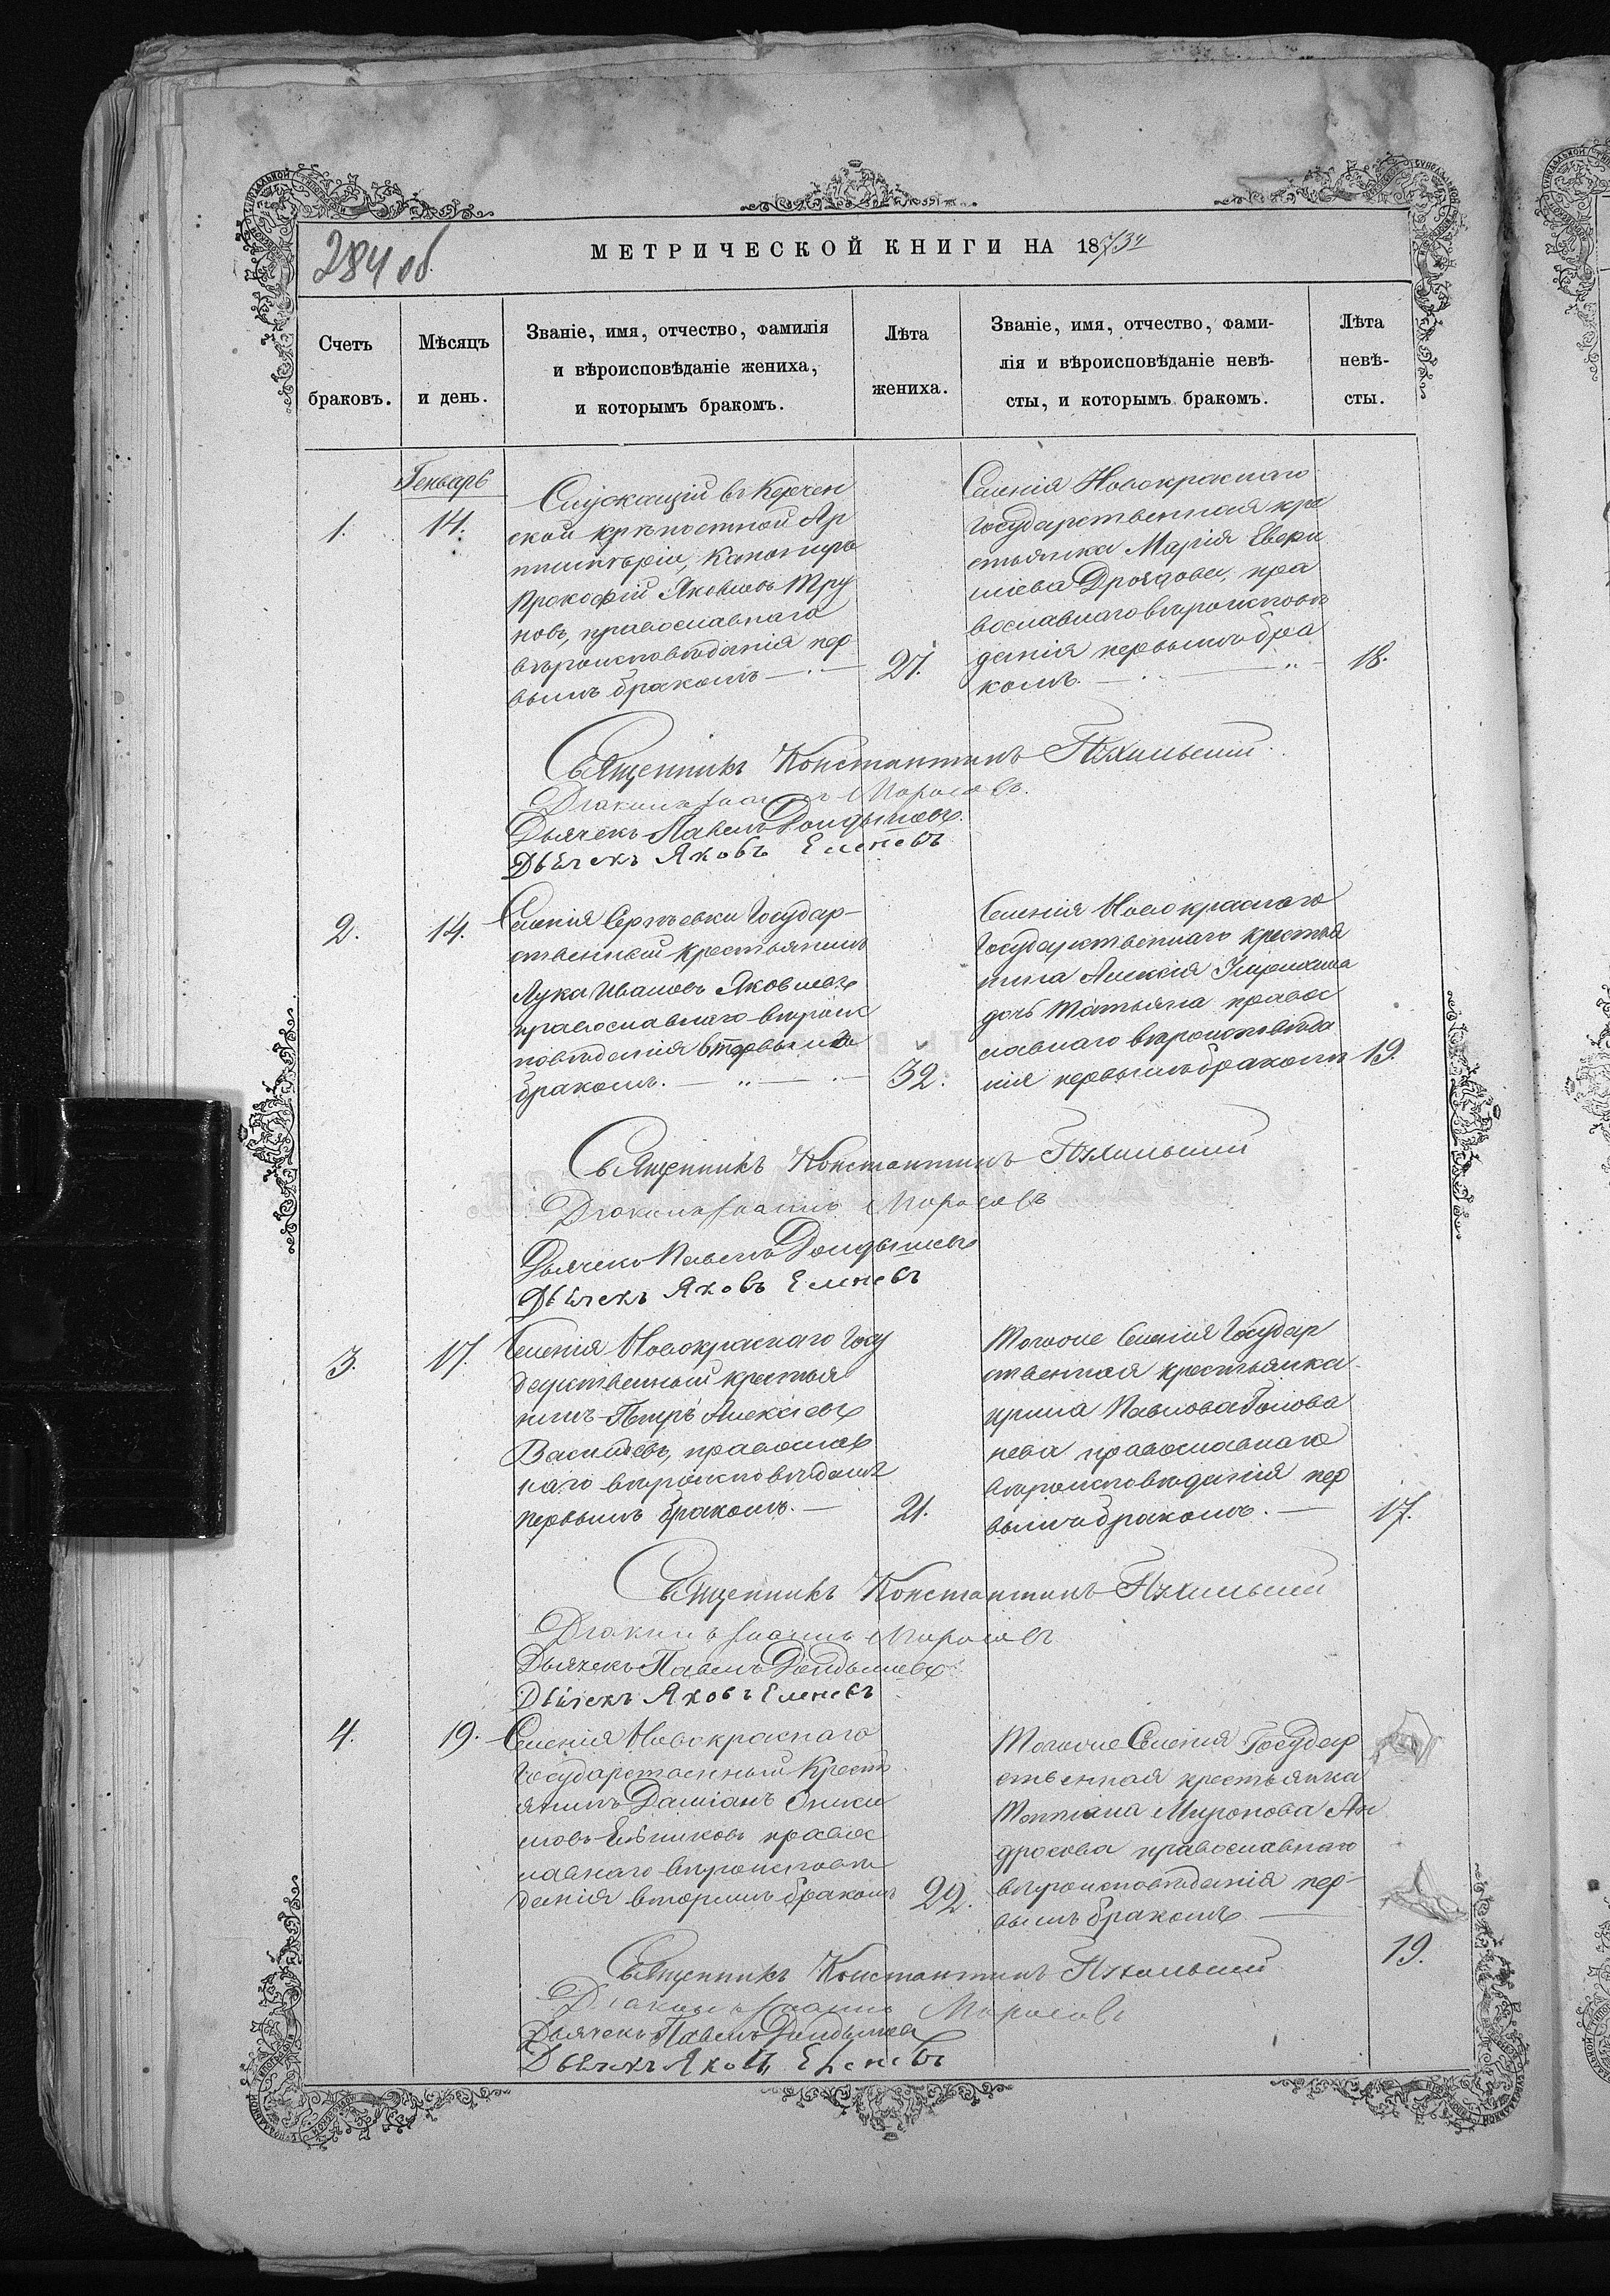 284 об
МЕТРИЧЕСКОЙ КНИГИ НА 1873й
Счетъ
браковъ.
Мѣсяцъ
и день.
Званіе, имя, отчество, фамилія
и вѣроисповѣданіе жениха,
и которымъ бракомъ.
Лѣта
жениха.
Званіе, имя, отчество, фами-
лія и вѣроисповѣданіе невѣ-
сты, и которымъ бракомъ.
Лѣта
невѣ-
сты.
Генварь
1.
14.
Служащій въ Керчен
ской крѣпостной Ар
тиллеріи, Канониръ
Прокофій Яковлевъ Тру
новъ, православнаго
вѣроисповѣданія пер
вымъ бракомъ
27.
Селенія Новокраснаго
Государственная кре
стьянка Марія
Дроздова, пра
вославнаго вѣроисповѣ
данія первымъ бра
комъ.
18.
Священникъ Константинъ
Діаконъ Іоаннъ Морозовъ
Дьячекъ Павелъ
Дьячекъ Яковъ Еленевъ
2.
14.
Селенія Сергѣевки Государ-
ственный крестьянинъ
Лука Ивановъ Яковлевъ
православнаго вѣроис
повѣданія
бракомъ.
32.
Селенія Новокраснаго
Государственнаго крестья
нина Алексія
дочь Татьяна правос
лавнаго вѣроисповѣда
нія первымъ бракомъ
19.
Священникъ Константинъ
Діаконъ Іоаннъ Морозовъ
Дьячекъ Павелъ
Дьячекъ Яковъ Еленевъ
3.
17.
Селенія Новокраснаго Госу
дарственный крестья
нинъ Петръ Алексіевъ
Васильевъ, православ
наго вѣроисповѣданія
первымъ бракомъ.
21.
Тогоже Селенія Государ
ственная крестьянка
Ирина Павлова Голова
нева православнаго
вѣроисповѣданія пер
вымъ бракомъ.
17.
Священникъ Константинъ
Діаконъ Іоаннъ Морозовъ
Дьячекъ Павелъ
Дьячекъ Яковъ Еленевъ
4.
19.
Селенія Новокраснаго
Государственный Крест
янинъ Даміанъ Оники
мовъ правос
лавнаго вѣроисповѣ
данія вторымъ бракомъ
29.
Тогоже Селенія Государ
ственная крестьянка
Татіана Миронова Ан
дросова православнаго
вѣроисповѣданія пер-
вымъ бракомъ
19.
Священникъ Константинъ
Діаконъ Іоаннъ Морозовъ
Дьячекъ Павелъ
Дьячекъ Яковъ Еленевъ